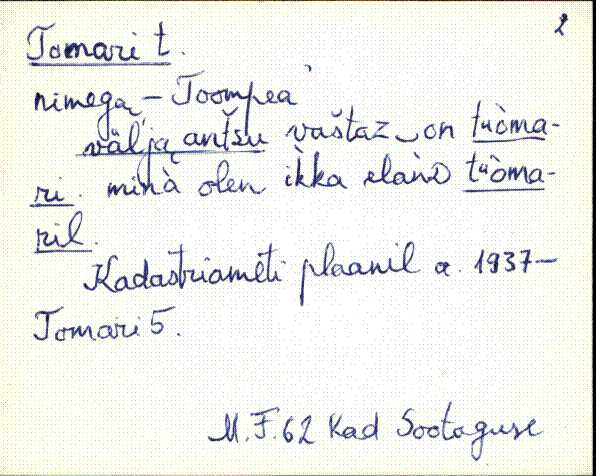 2
Tomari t.
nimega – Toompea
välja antšu vaštaz on tuòma-
ri. minà olen ìkka elànD tuòma-
ril.
Kadastriameti plaanil a. 1937 –
Tomari 5.
M.F. 62 Kad Sootaguse